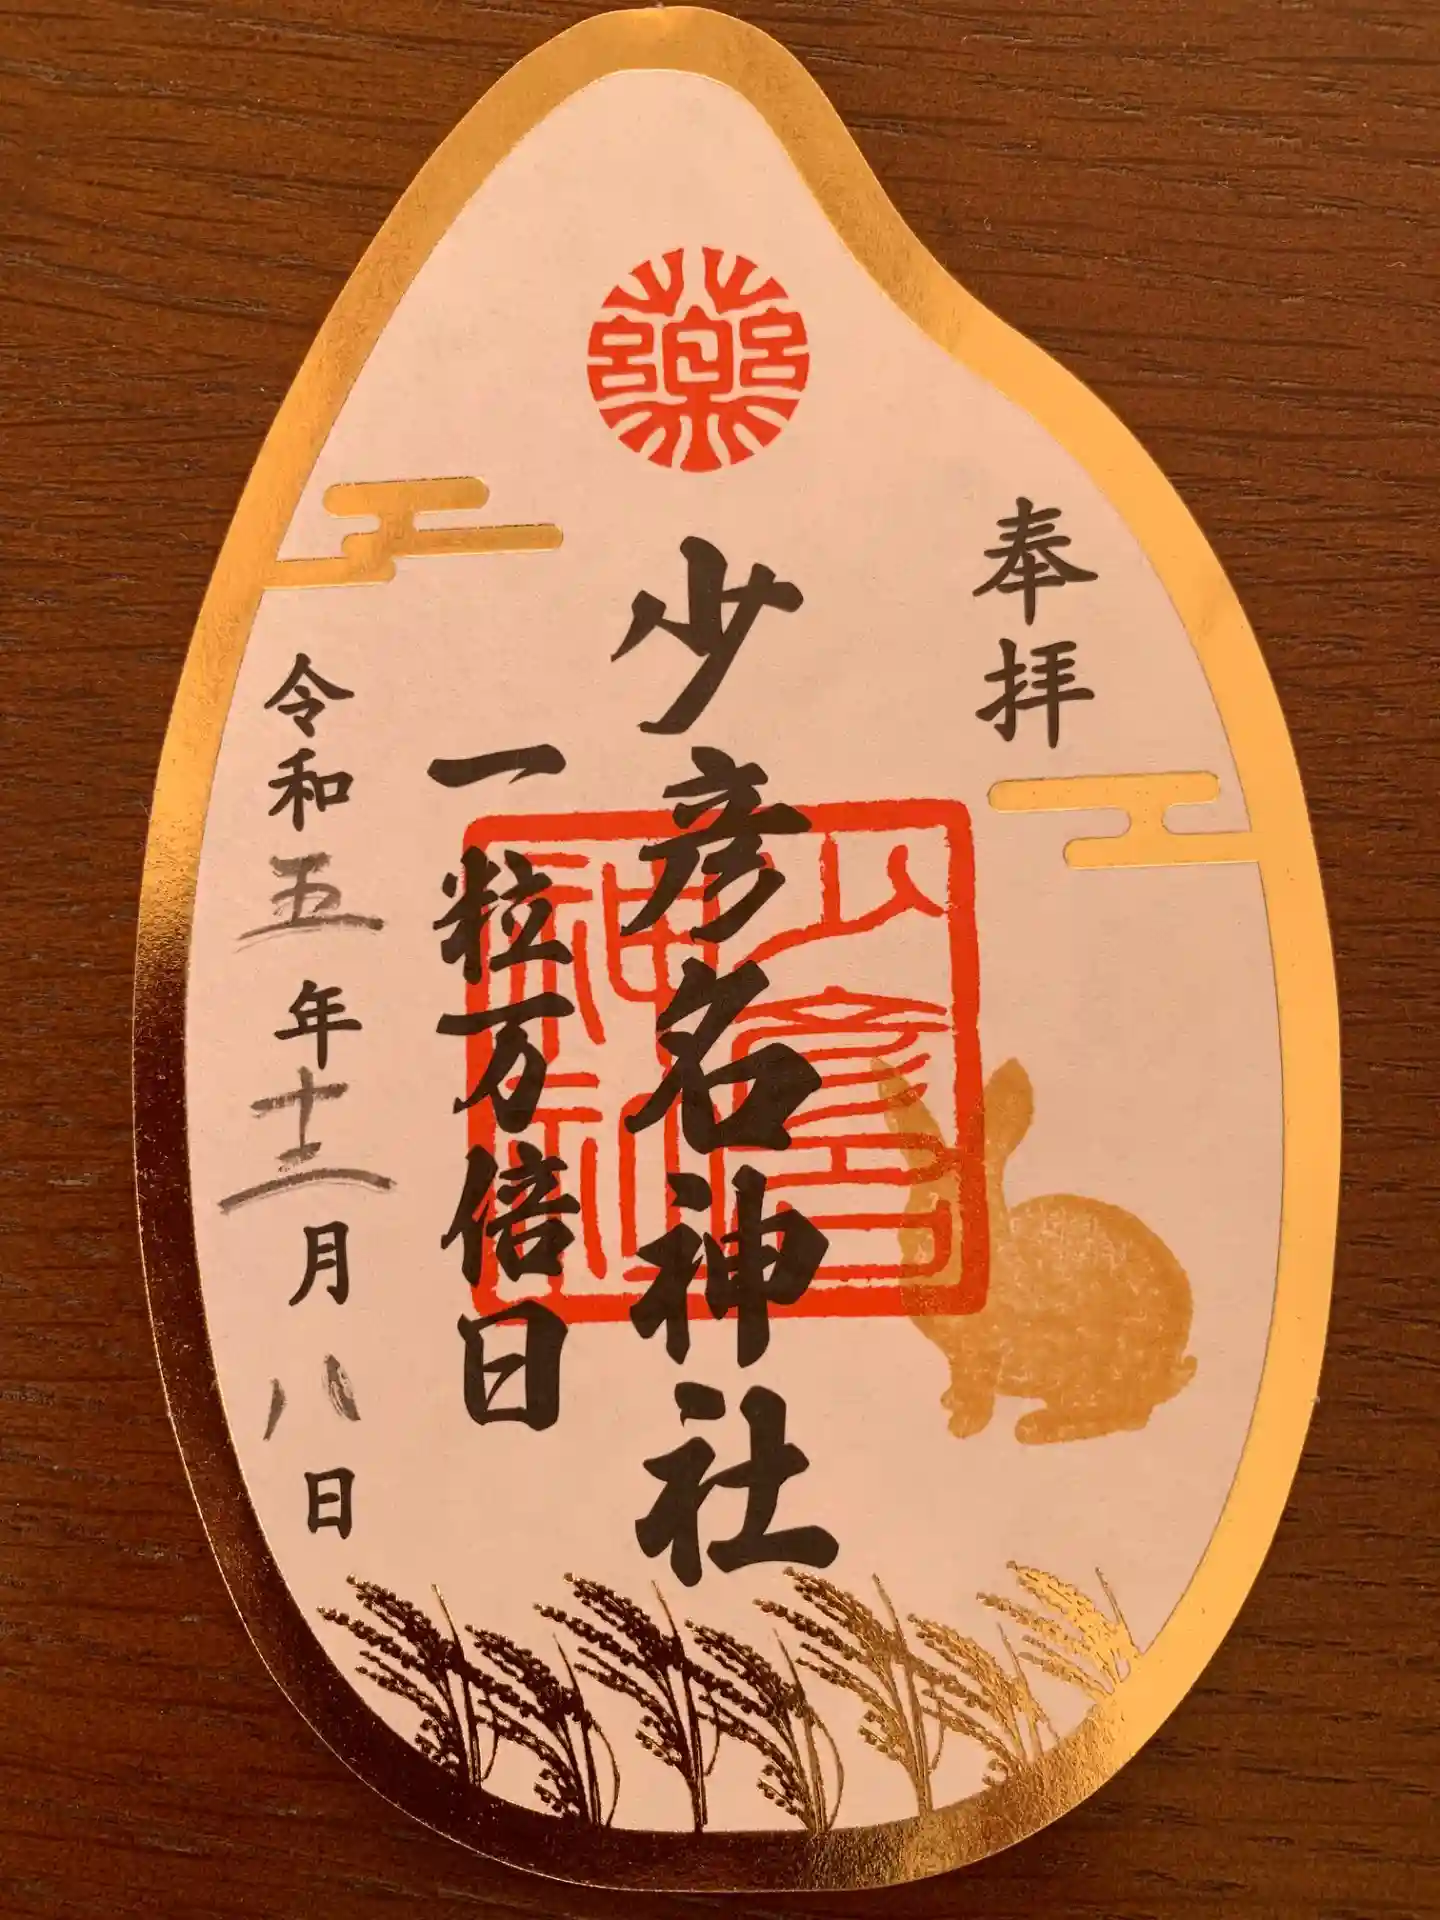 奉拝
藥
少彦名神社
少彦名
神社
一粒万倍日
令和五年十二月八日